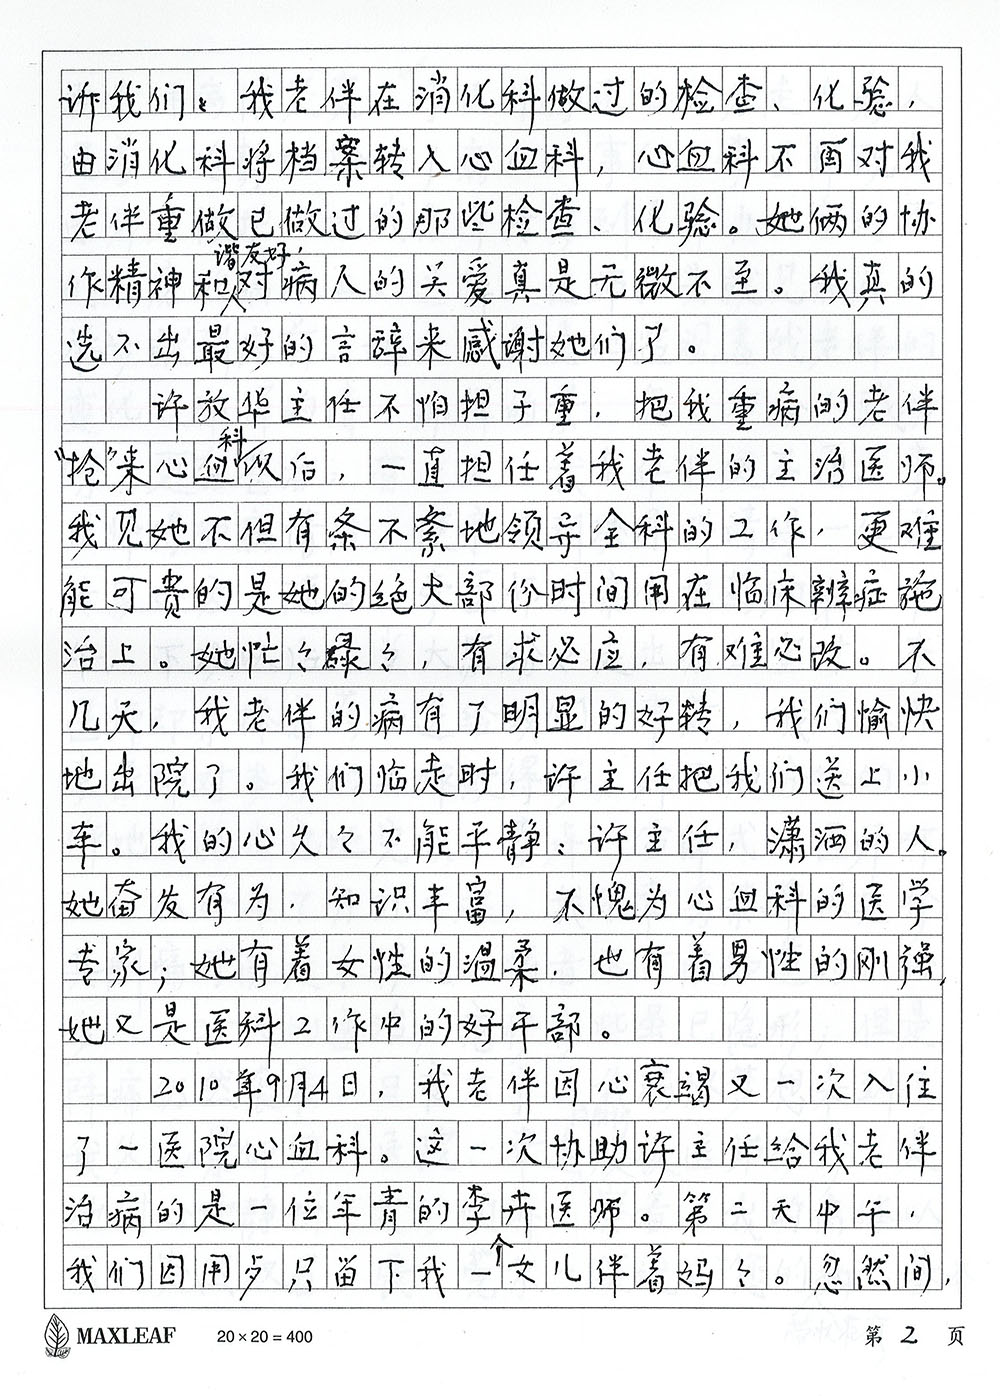 诉我们：我老伴在消化科做过的检查、化验，
由消化科将档案转入心血科，心血科不再对我
老伴重做已做过的那些检查、化验。她俩的协
谐友好，
作精神和对病人的关爱真是无微不至。我真的
人
选不出最好的言辞来感谢她们了。
许放华主任不怕担子重，把我重病的老伴
科
“抢”来心血似后，一直担任着我老伴的主治医师。
我见她不但有条不紊地领导全科的工作，更难
能可贵的是她的绝大部份时间用在临床辨症施
治上。她忙々碌々，有求必应，有难必改。不
几天，我老伴的病有了明显的好转，我们愉快
地出院了。我们临走时，许主任把我们送上小
车。我的心久々不能平静：许主任，潇洒的人。
她奋发有为，知识丰富，不愧为心血科的医学
专家；她有着女性的温柔，也有着男性的刚强，
她又是医科工作中的好干部。
2010年9月4日，我老伴因心衰竭又一次入住
了一医院心血科。这一次协助许主任给我老伴
治病的是一位年青的李卉医师。第二天中午，
个
我们因用歺只留下我一女儿伴着妈々。忽然间，
MAXLEAF 20×20=400 第 2 页